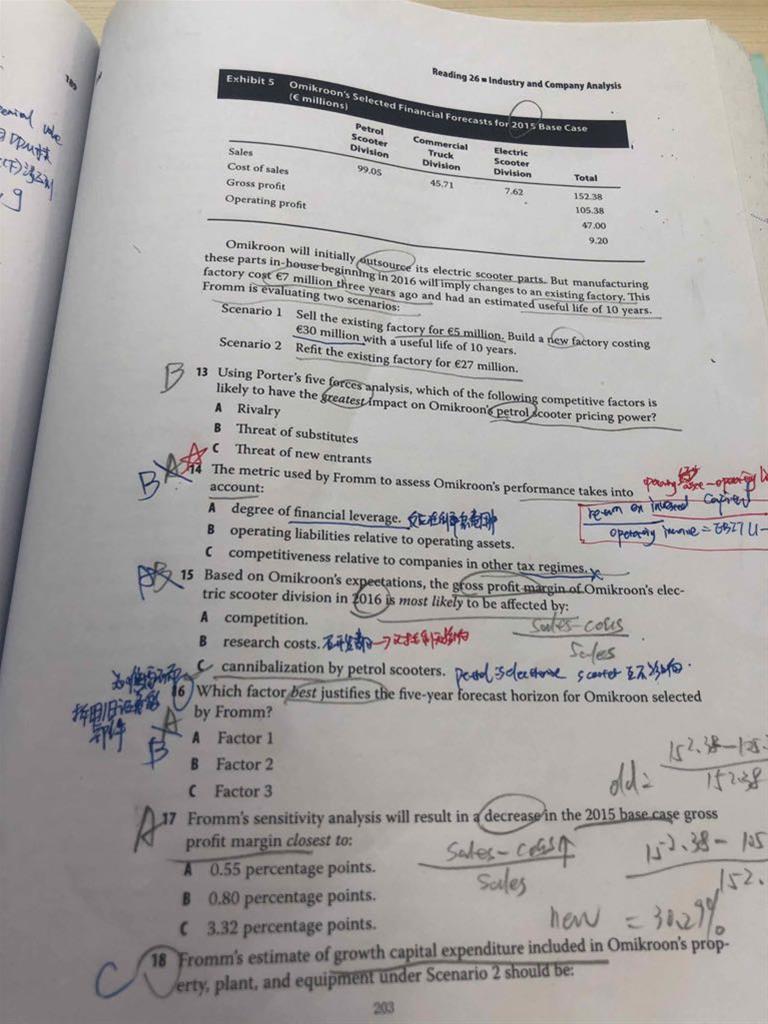 Reading 26 ■ Industry and Company Analysis
Exhibit 5 Omikroon's Selected Financial Forecasts for 2015 Base Case
(€ millions)
Petrol Scooter Division Commercial Truck Division Electric Scooter Division Total
Sales 99.05 45.71 7.62 152.38
Cost of sales 105.38
Gross profit 47.00
Operating profit 9.20
Omikroon will initially outsource its electric scooter parts. But manufacturing
these parts in-house beginning in 2016 will imply changes to an existing factory. This
factory cost €7 million three years ago and had an estimated useful life of 10 years.
Fromm is evaluating two scenarios:
Scenario 1 Sell the existing factory for €5 million. Build a new factory costing
€30 million with a useful life of 10 years.
Scenario 2 Refit the existing factory for €27 million.
B 13 Using Porter's five forces analysis, which of the following competitive factors is
likely to have the greatest impact on Omikroon's petrol scooter pricing power?
A Rivalry
B Threat of substitutes
C Threat of new entrants
B A 14 The metric used by Fromm to assess Omikroon's performance takes into
account:
return on invested capital
A degree of financial leverage.
B operating liabilities relative to operating assets.
C competitiveness relative to companies in other tax regimes.
15 Based on Omikroon's expectations, the gross profit margin of Omikroon's elec-
tric scooter division in 2016 is most likely to be affected by:
A competition.
sales - cogs
B research costs.
sales
C cannibalization by petrol scooters.
16 Which factor best justifies the five-year forecast horizon for Omikroon selected
by Fromm?
A
B
A Factor 1
B Factor 2
C Factor 3
old =
152.38
A 17 Fromm's sensitivity analysis will result in a decrease in the 2015 base case gross
profit margin closest to:
Sales - cogs↑
Sales
152.38 - 105
152.
A 0.55 percentage points.
B 0.80 percentage points.
C 3.32 percentage points.
new = 30.29%
C 18 Fromm's estimate of growth capital expenditure included in Omikroon's prop-
erty, plant, and equipment under Scenario 2 should be:
203